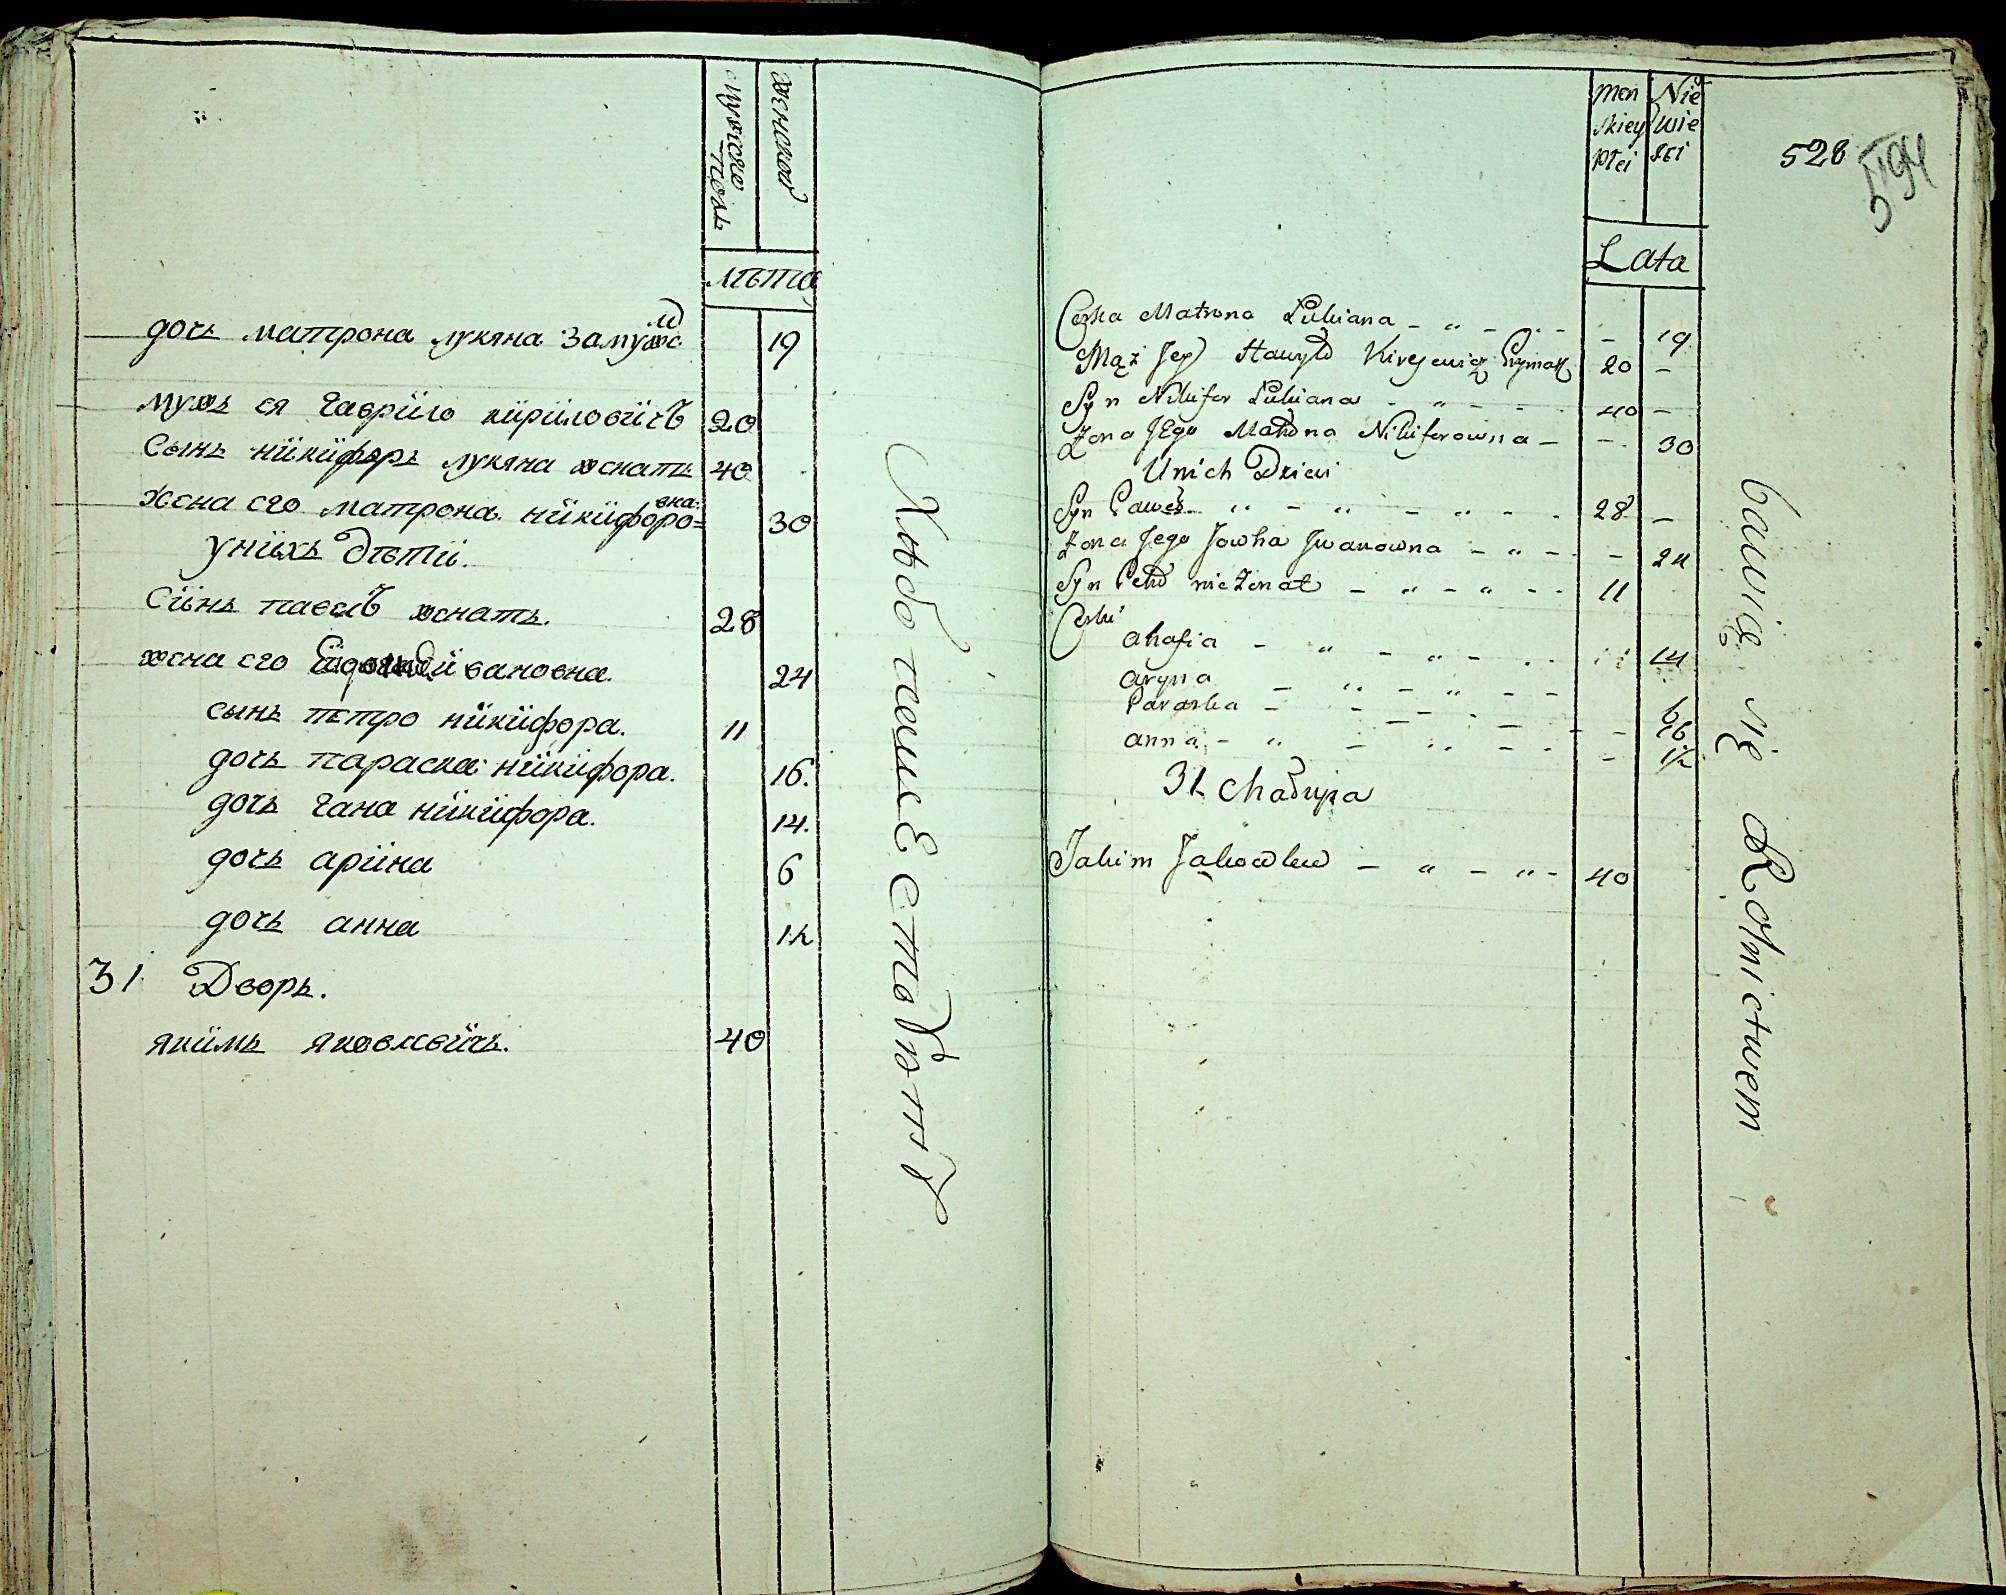 мужеска полъ
женска
лѣта
дочь матрона лукяна замужемъ 19
мужъ ея гаврїло кїрїловїчъ 20
сынъ нїкїфоръ лукяна женатъ 40
жена его матрона нїкїфоровна 30
унїхъ дѣтїи.
сїнъ павелъ женатъ. 28
жена его ївановна. 24
сынъ петро нїкїфора. 11
дочь параска нїкїфора. 16.
дочь гана нїкїфора. 14.
дочь арїна 6
дочь анна 1½
31. Дворъ.
якїмъ яковлевїчъ. 40
Хлѣбопашеством
528
594
Men skiey Płci
Nie wie ści
Lata
Corka Matrona Lukiana - „ - „ - - 19
Mąż Jey Hawryło Kirejewicz 20 -
Syn Nikifor Lukiana - „ - - 40 -
Żona Jego Matrona Nikiforowna - - 30
Unich Dzieci
Syn Paweł „ - „ - „ - - 28 -
Żona Jego Jowha Jwanowna - „ - - 24
Syn Petro nieżonat - „ - „ - - 11
Corki
ahafia - „ - „ - - 14
aryna - „ - „ - - 6
Paraska - - - - - 16
anna - „ - „ - - - 1½
31 Chałupa
Jakim Jakowlew - „ - „ - 40
bawię się Rolnictwem